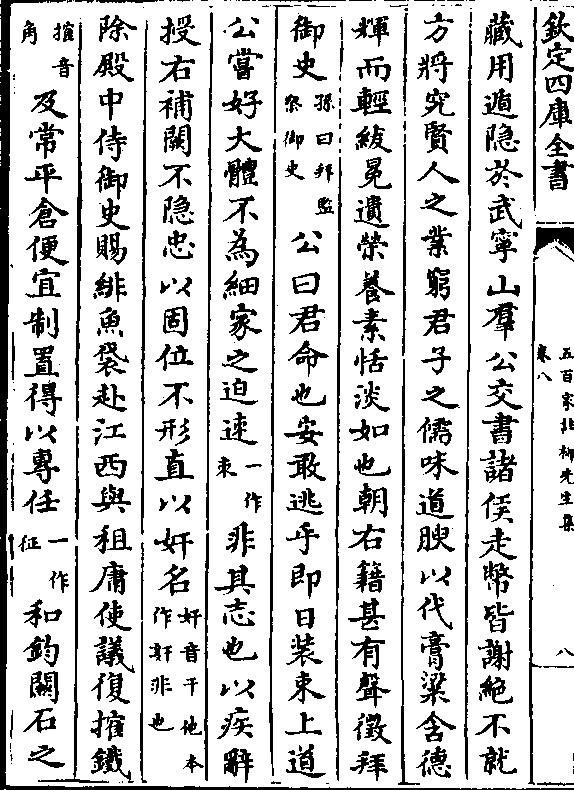 欽定四庫全書
五百家註柳先生集
卷八
八
藏用遁隐於武寧山羣公交書諸侯走幣皆謝絶不就
方將究賢人之業窮君子之儒味道腴以代膏粱含德
輝而輕紱冕遺榮養素恬淡如也朝右籍甚有聲徵拜
御史孫曰拜監察御史公曰君命也安敢逃乎即日装束上道
公嘗好大體不為細家之迫速一作束非其志也以疾辭
授右補闕不隐忠以固位不形直以奸名奸音干他本作訐非也
除殿中侍御史賜緋魚袋赴江西與租庸使議復搉鐵
搉音角及常平倉便宜制置得以專任一作征和鈞關石之